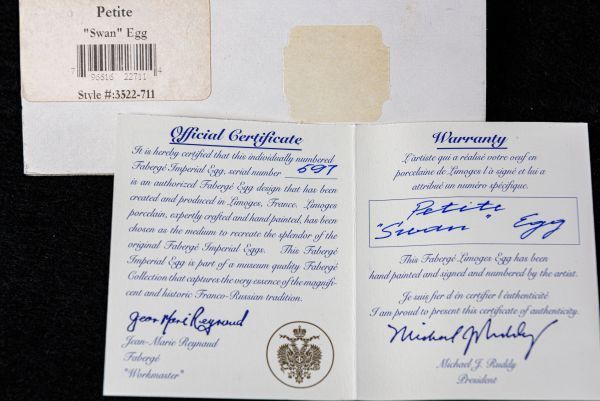 Petite
"Swan" Egg
7 96616 22711 4
Style #:3522-711
Official Certificate
It is hereby certified that this individually numbered
Fabergé Imperial Egg, serial number 597
is an authorized Fabergé Egg design that has been
created and produced in Limoges, France. Limoges
porcelain, expertly crafted and hand painted, has been
chosen as the medium to recreate the splendor of the
original Fabergé Imperial Eggs. This Fabergé
Imperial Egg is part of a museum quality Fabergé
Collection that captures the very essence of the magnifi-
cent and historic Franco-Russian tradition.
Jean Marie Reynaud
Jean-Marie Reynaud
Fabergé
"Workmaster"
Warranty
L'artiste qui a réalisé votre oeuf en
porcelaine de Limoges l'à signé et lui a
attribué un numéro spécifique.
Petite
"Swan" Egg
This Fabergé Limoges Egg has been
hand painted and signed and numbered by the artist.
Je suis fier d'én certifier l'éuthenticité
I am proud to present this certificate of authenticity.
Michael J Ruddy
Michael J. Ruddy
President